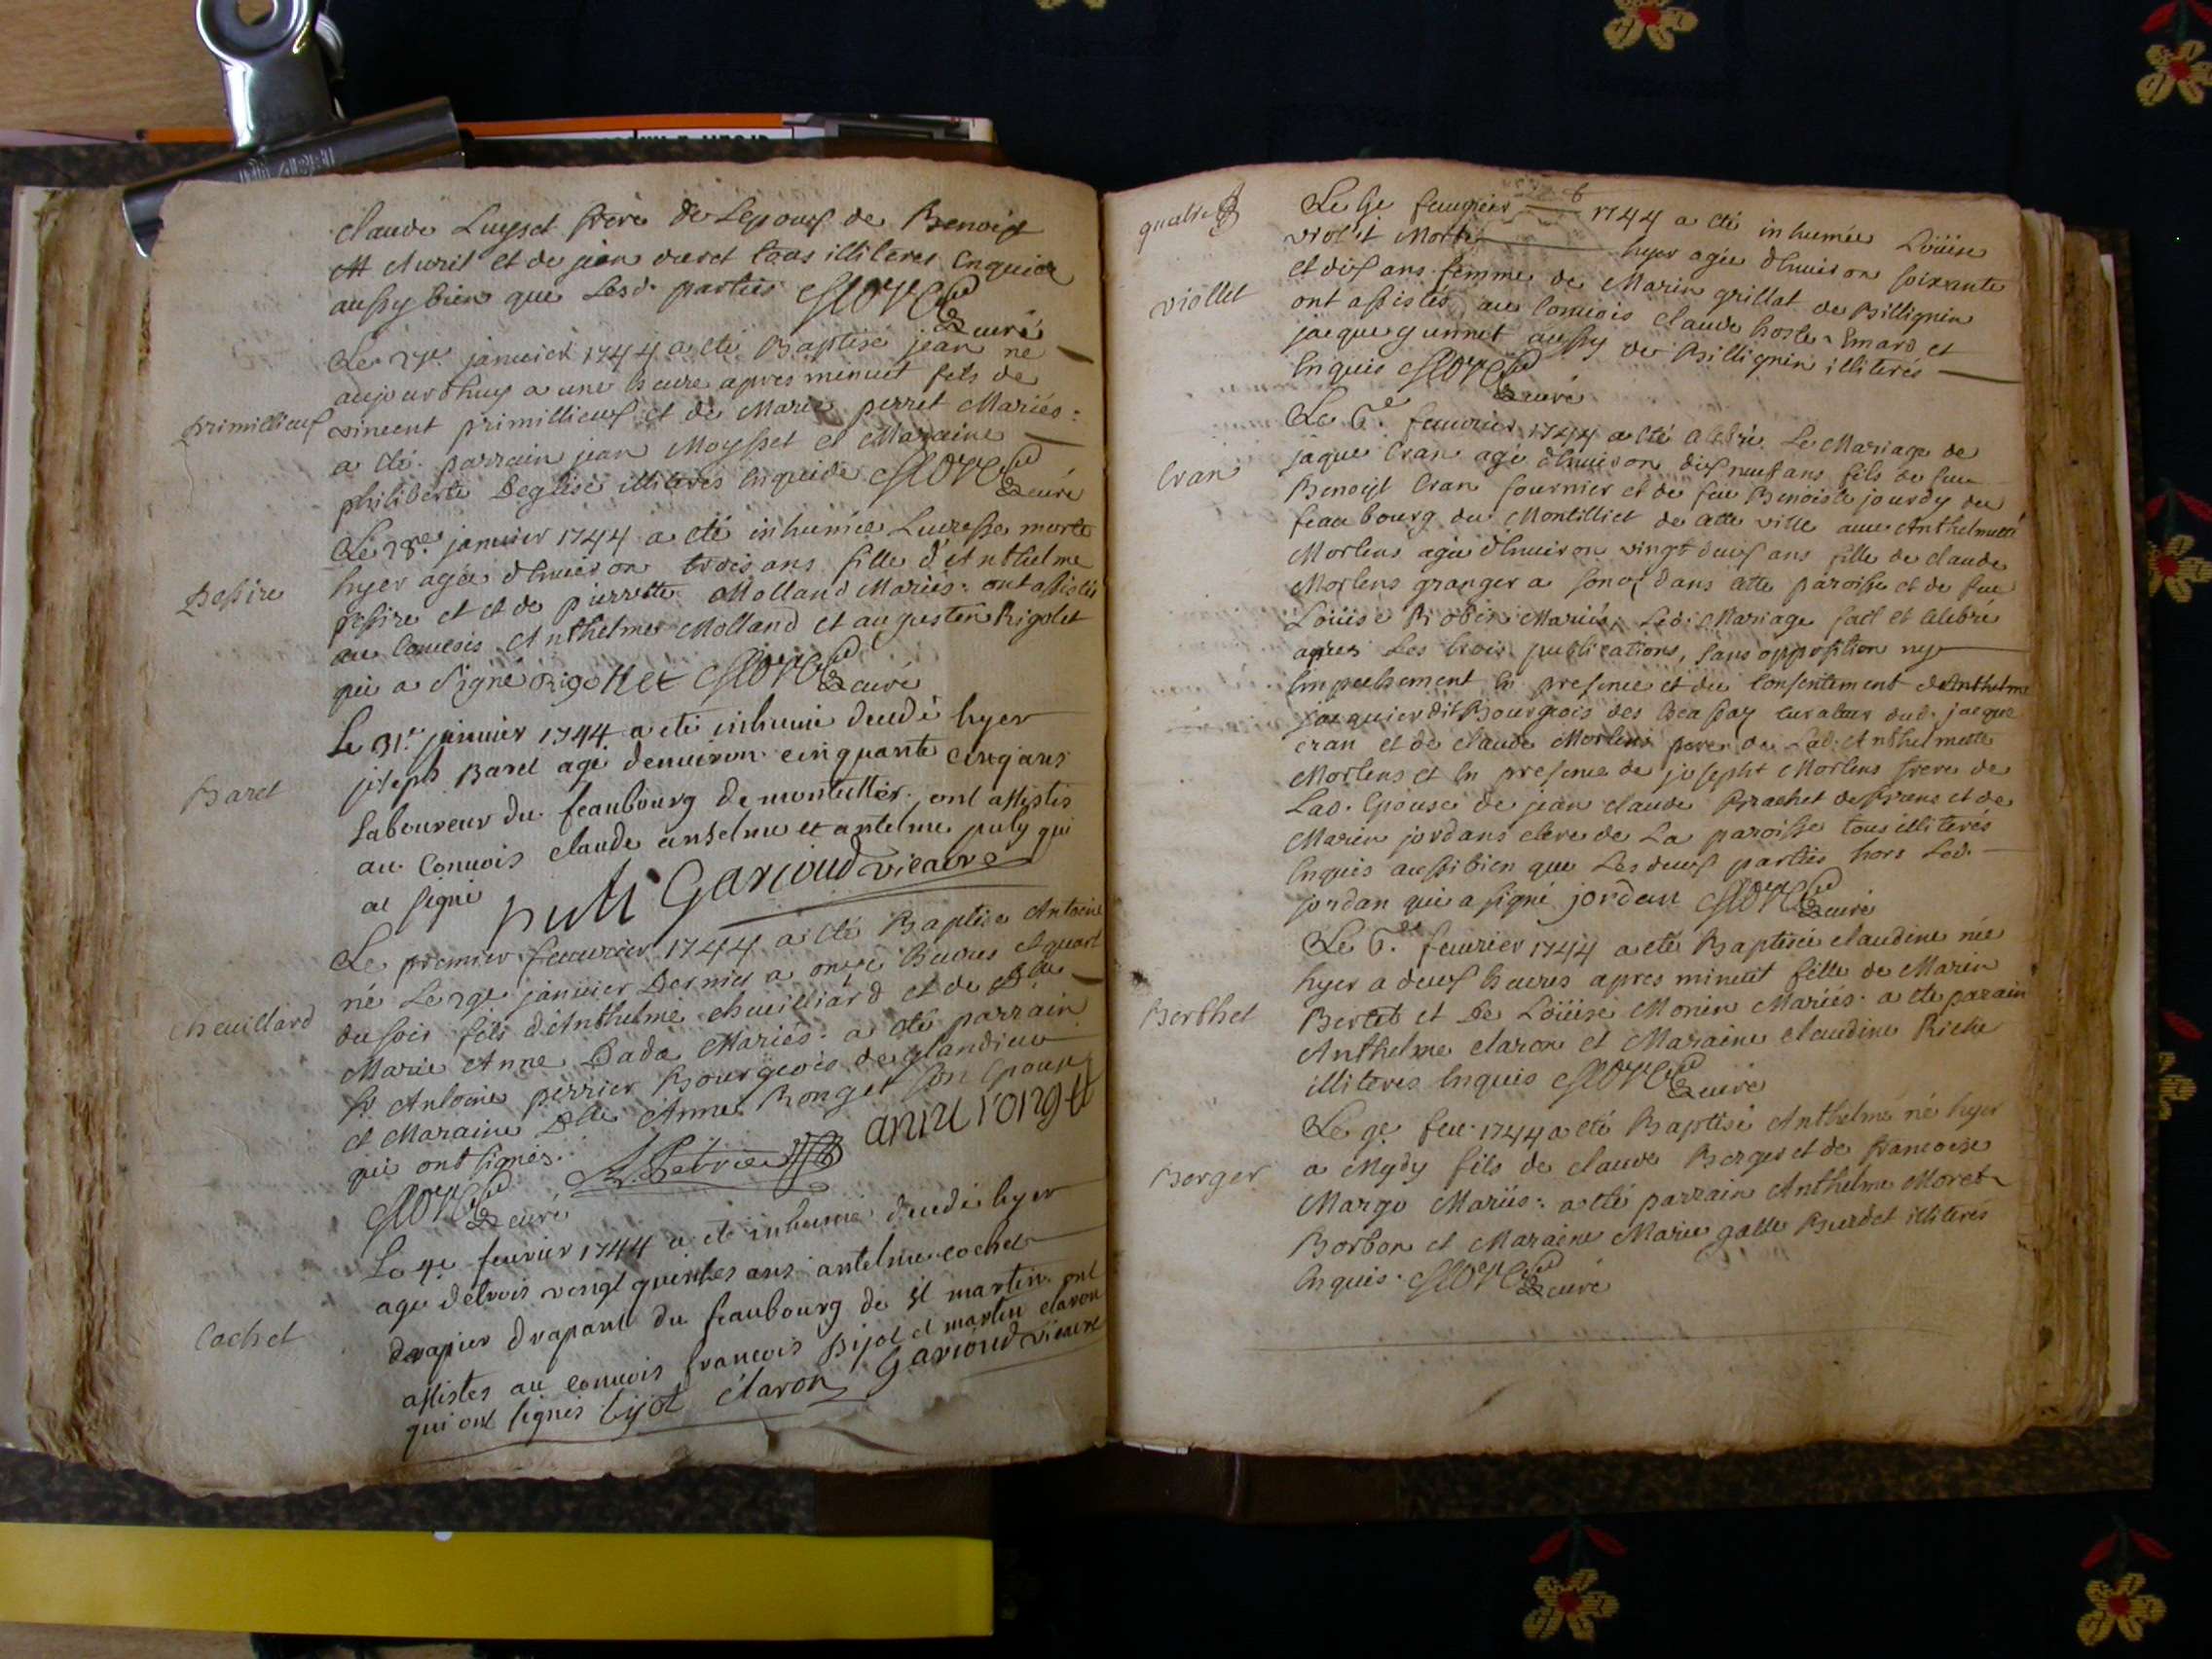 claude Luysset frere de Lepoux de Benoist
et de jean duret tous illiteres Enquis
aussy bien que Lesd. parties curé
Le 27e. januier 1744 a eté Baptisé jean né
aujourdhuy a une heure apres minuit fils de
Primillieux
vincent primillieux et de Marie perret Mariés:
a eté parrain jean Moysset et Maraine
philiberte Deglise illiterés Enquis de curé
Le 28e. januier 1744 a eté inhumée Lucresse morte
hyer agée d'Enuiron trois ans fille d'Anthelme
Pessire
pessire et et de pierrette Molland Mariés: ont assistés
au Conuois Anthelme Molland et augustin Rigolet
qui a signé Rigollet curé
Le 31e. januier 1744 a eté inhumé decedé hyer
Baret
joseph Baret agé denuiron cinquante cinq ans
Laboureur du feaubourg de montillier. ont assistés
au Conuois claude anselme et antelme puly qui
at signé
puli Garioud vicaire
Le premier feurier 1744 a eté Baptisé Antoine
né Le 29e januier Dernier a onze heures et quart
Cheuillard
du soir fils d'Anthelme cheuilliard et de Dlle
Marie Anne Dada Mariés. a eté parrain
Sr Antoine perrier Bourgeois de glandieu
et Maraine Dlle Anne Ronget son Epouse
qui ont signés. A. Perrier anne ronget
curé
Le 4e feurier 1744 a eté inhumé decedé hyer
agé detrois vengt quinses ans antelme cochet
Cochet
drapier drapant du feaubourg de st martin. ont
assistes au conuois francois Bijot et martin claron
qui ont signés bijot claron Garioud vicaire
quatre
Le 5e feurier 1744 a eté inhumée Loüise
violet Morte hyer agée d'Enuiron soixante
et dix ans femme de Marin grillat de Billignin
Viollet
ont assistés au Conuois claude hoste Emard et
jacque gunnet aussy de Billignin illiterés
Enquis curé
Le 6.e feurier 1744 a eté Celebré Le Mariage de
Cran
jaque Cran agé d'Enuiron dix neuf ans fils de feu
Benoist Cran fournier et de feu Benoiste jourdy du
feaubourg du Montilliet de cette ville auec Anthelmette
Mortens agée d'Enuiron vingt deux ans fille de claude
Mortens granger a dans cette paroisse et de feu
Loüise Robin Mariés, Led. Mariage fact et Celebré
apres Les trois publications, sans opposition ny
Empechement En presence et du Consentement de Anthelme
jacquier dit Bourgeois des curateur dud. jacque
cran et de claude Mortens pere de Lad. Anthelmette
Mortens et En presence de joseph Mortens frere de
Lad. Epouse de jean claude Brachet de Brens et de
Marin jordans clerc de La paroisse tous illiterés
Enquis aussi bien que Les deux parties hors Led.
jordan qui a signé jordan curé
Le 6.e feurier 1744 a eté Baptisée claudine née
hyer a deux heures apres minuit fille de Marin
Berthet
Bertet et De Loüise Monin Mariés. a eté parain
Anthelme claron et Maraine claudine Riche
illiteres Enquis curé
Le 9e feu. 1744 a eté Baptisé Anthelme né hyer
Berger
a Mydy fils de claude Berger et de francoise
Margo Mariés: a eté parrain Anthelme Moret
Borbon et Maraine Marie gatte Burdet illiterés
Enquis. curé